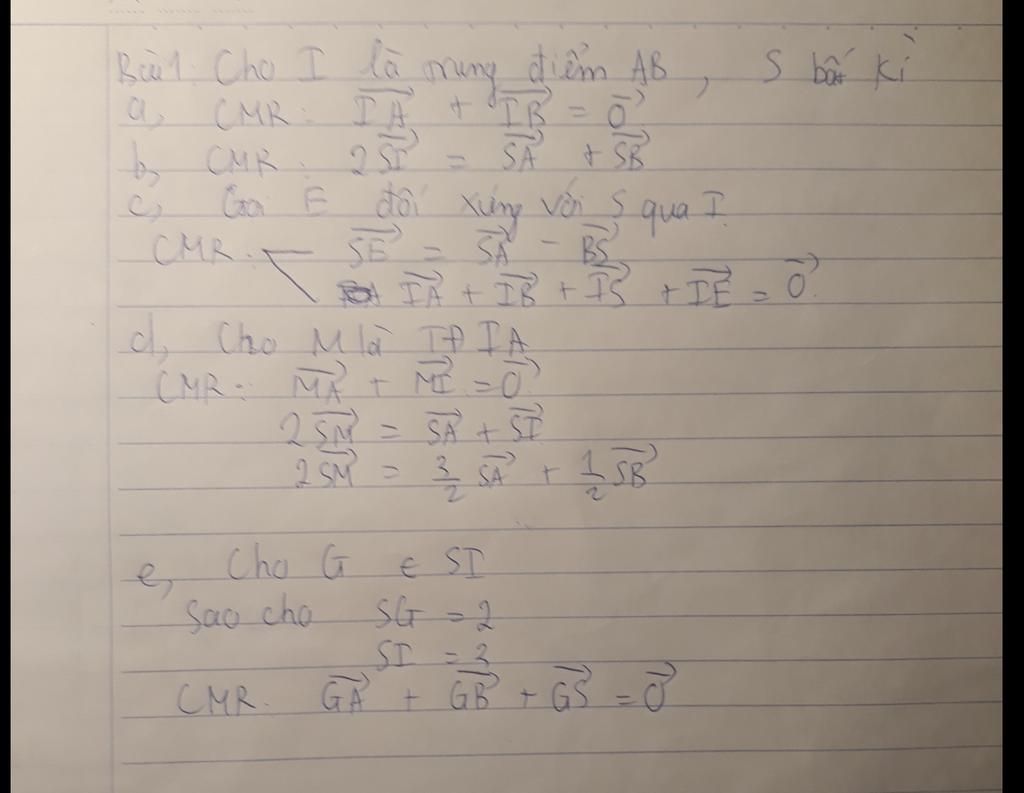 Bài 1: Cho I là trung điểm AB, S bất kì
a, CMR: $\overrightarrow{IA} + \overrightarrow{IB} = \vec{0}$
b, CMR: $2\overrightarrow{SI} = \overrightarrow{SA} + \overrightarrow{SB}$
c, Gọi E đối xứng với S qua I
CMR: $\overrightarrow{SE} = \overrightarrow{SA} - \overrightarrow{BS}$
$\overrightarrow{IA} + \overrightarrow{IB} + \overrightarrow{IS} + \overrightarrow{IE} = \vec{0}$.
d, Cho M là TĐ IA
CMR: $\overrightarrow{MA} + \overrightarrow{MI} = \vec{0}$
$2\overrightarrow{SM} = \overrightarrow{SA} + \overrightarrow{SI}$
$2\overrightarrow{SM} = \frac{3}{2}\overrightarrow{SA} + \frac{1}{2}\overrightarrow{SB}$
e, Cho G ∈ SI
sao cho SG = 2
SI = 3
CMR. $\overrightarrow{GA} + \overrightarrow{GB} + \overrightarrow{GS} = \vec{0}$